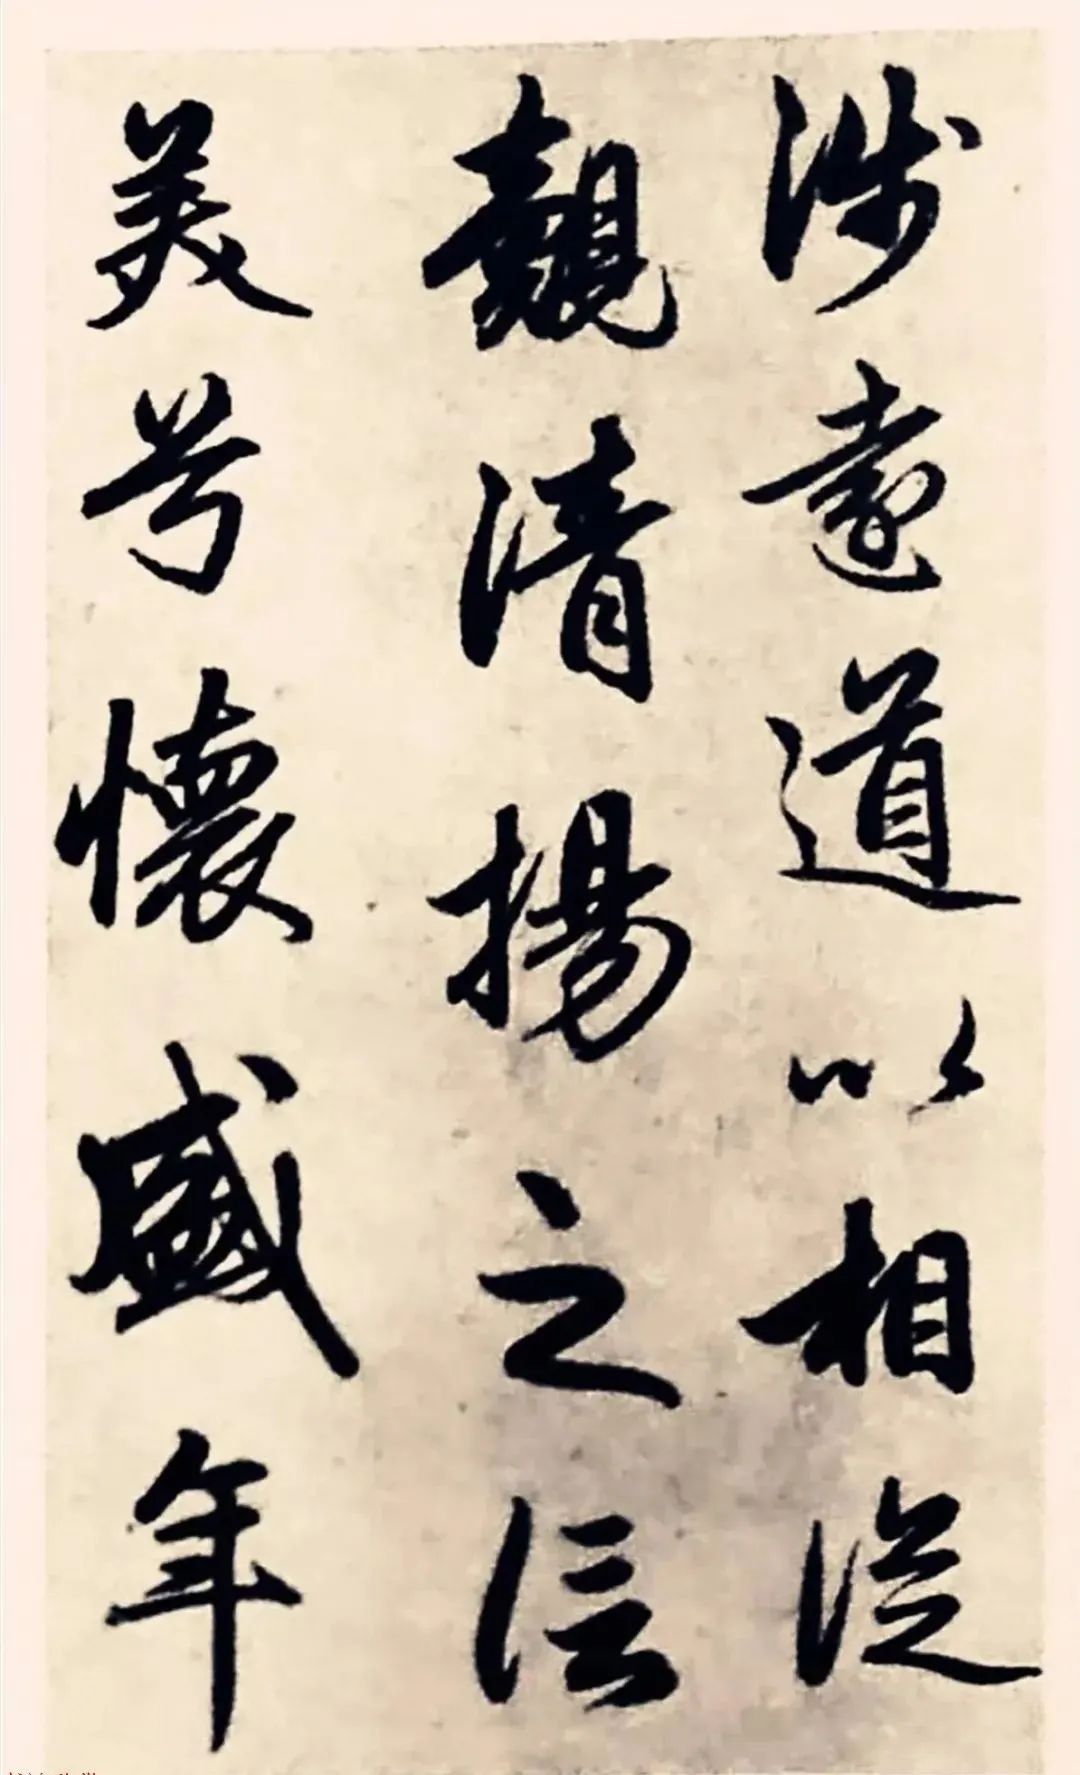 涉遠道以相從
覿清揚之信
美兮懷盛年